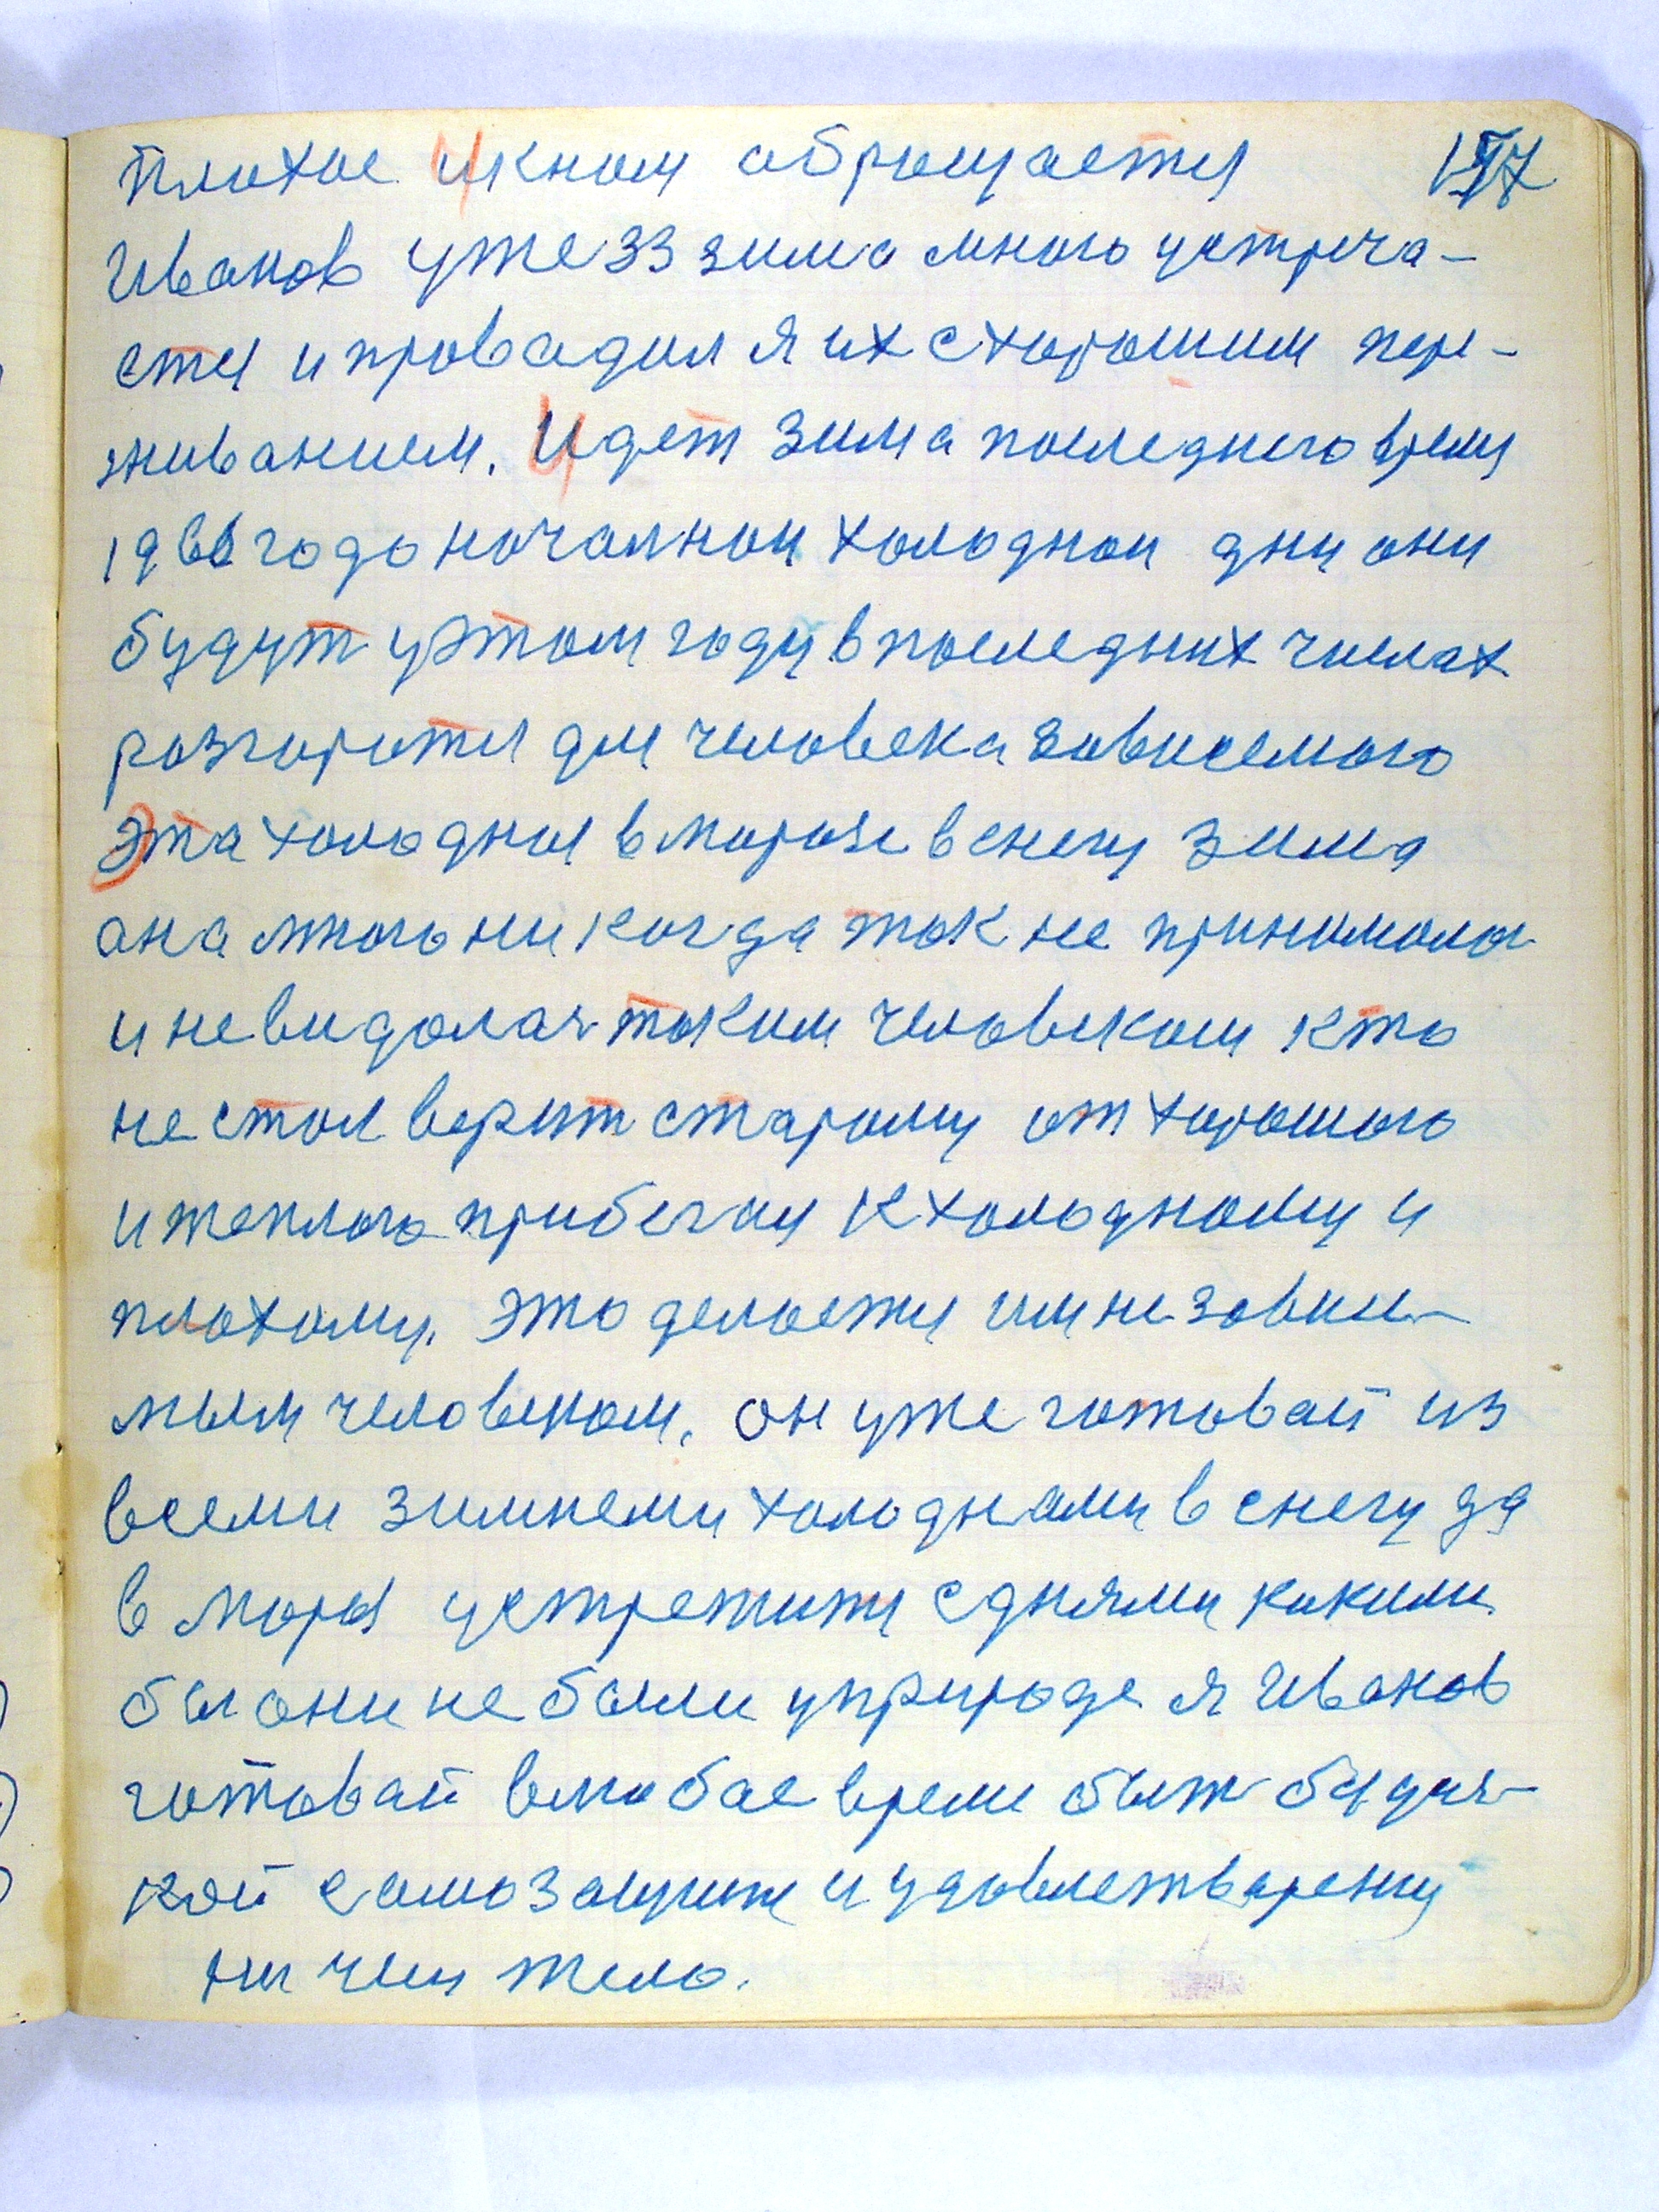 плохое и кнам обращается
Иванов уже 33 зима мною устреча-
стя и провадил я их с хорошим пере-
живанием. Идет зима последнего время
1966 года началнои холоднои дни они
будут у этом году в последних числах
розгорится для человека зависемого
Эта холодная в морозе в снегу зима
она мною никогда так не принималась
и не видалась таким человеком кто
не стал верить старому от хорошого
и теплого прибегаи к холодному и
плохому. Это делается им не завис-
мым человеком. Он уже готовай из
всеми зимнеми холоднами в снегу да
в мороз устретится с днями какими
бы они не были у природе я Иванов
готовай в любае время быть будуч-
кой самозащите и удовлетварению
ни чем тело.